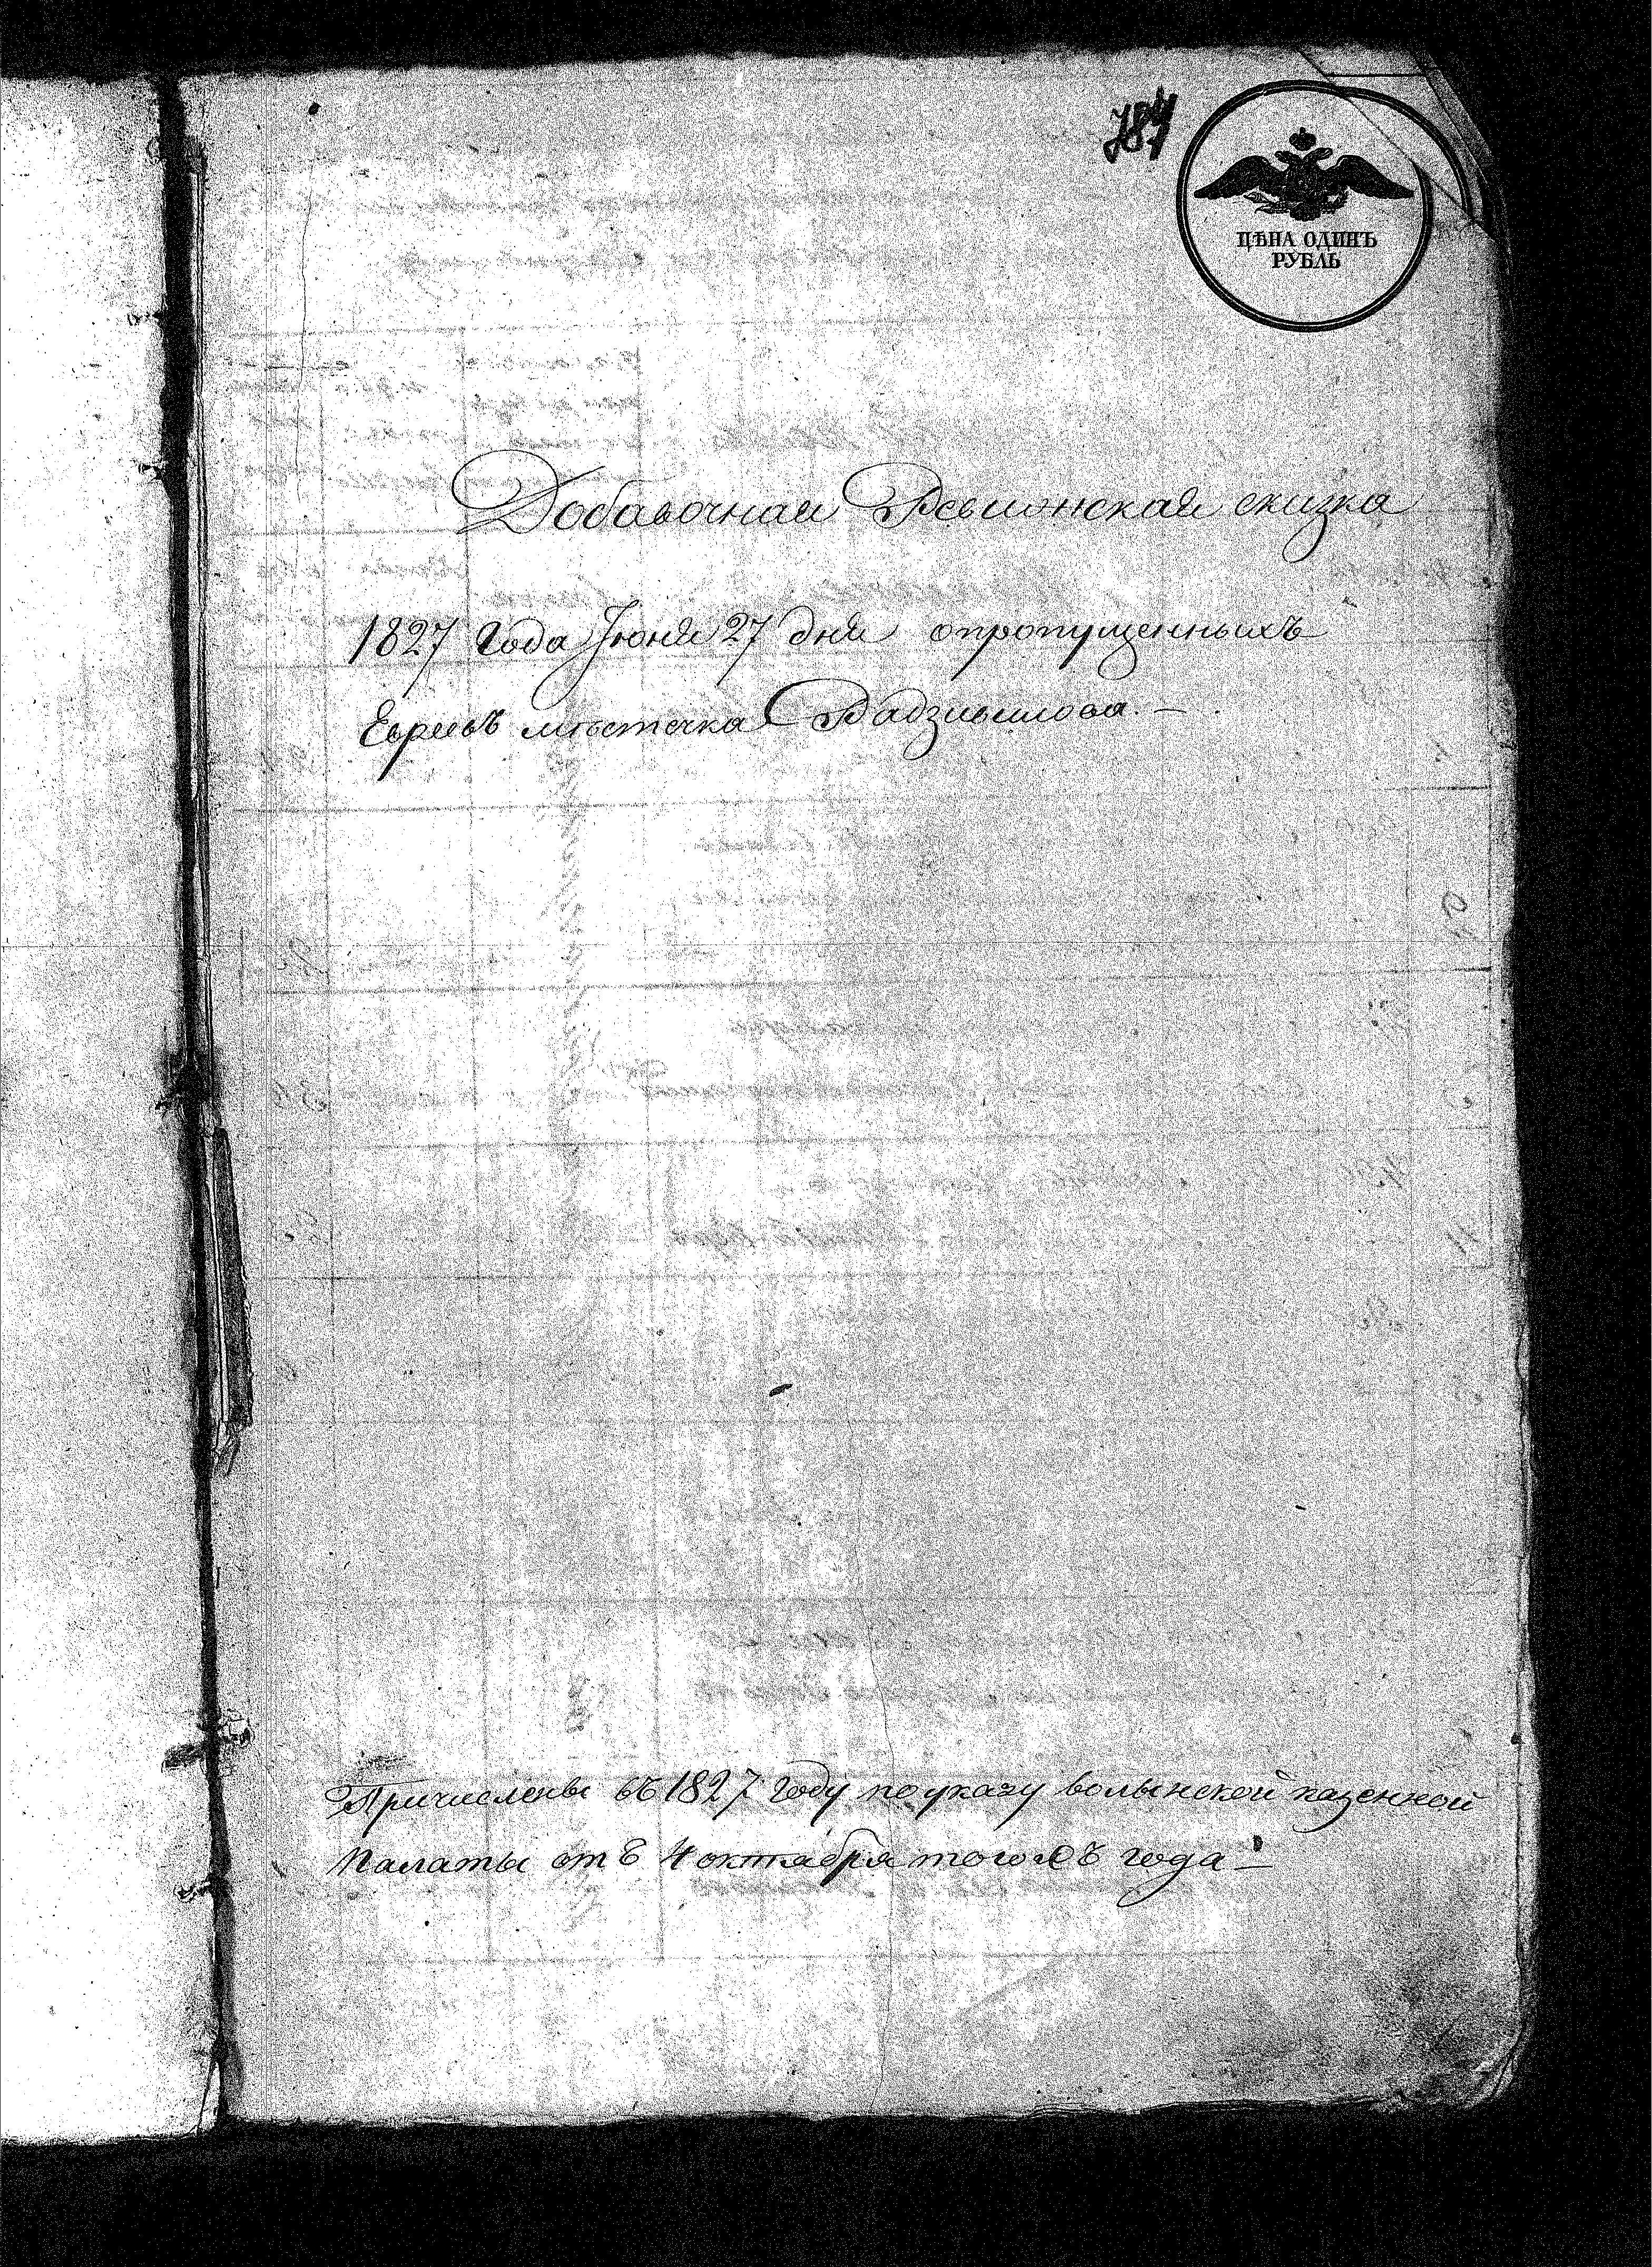 787
ЦѢНА ОДИНЪ
РУБЛЬ
Добавочная Ревизская сказка
1827 Года Июня 27 дня опропущенныхъ
Евреевъ мѣстечка Радзивилова. —
Причислены въ 1827 году по указу волынской казенной
Палаты отъ 4 октября того года —